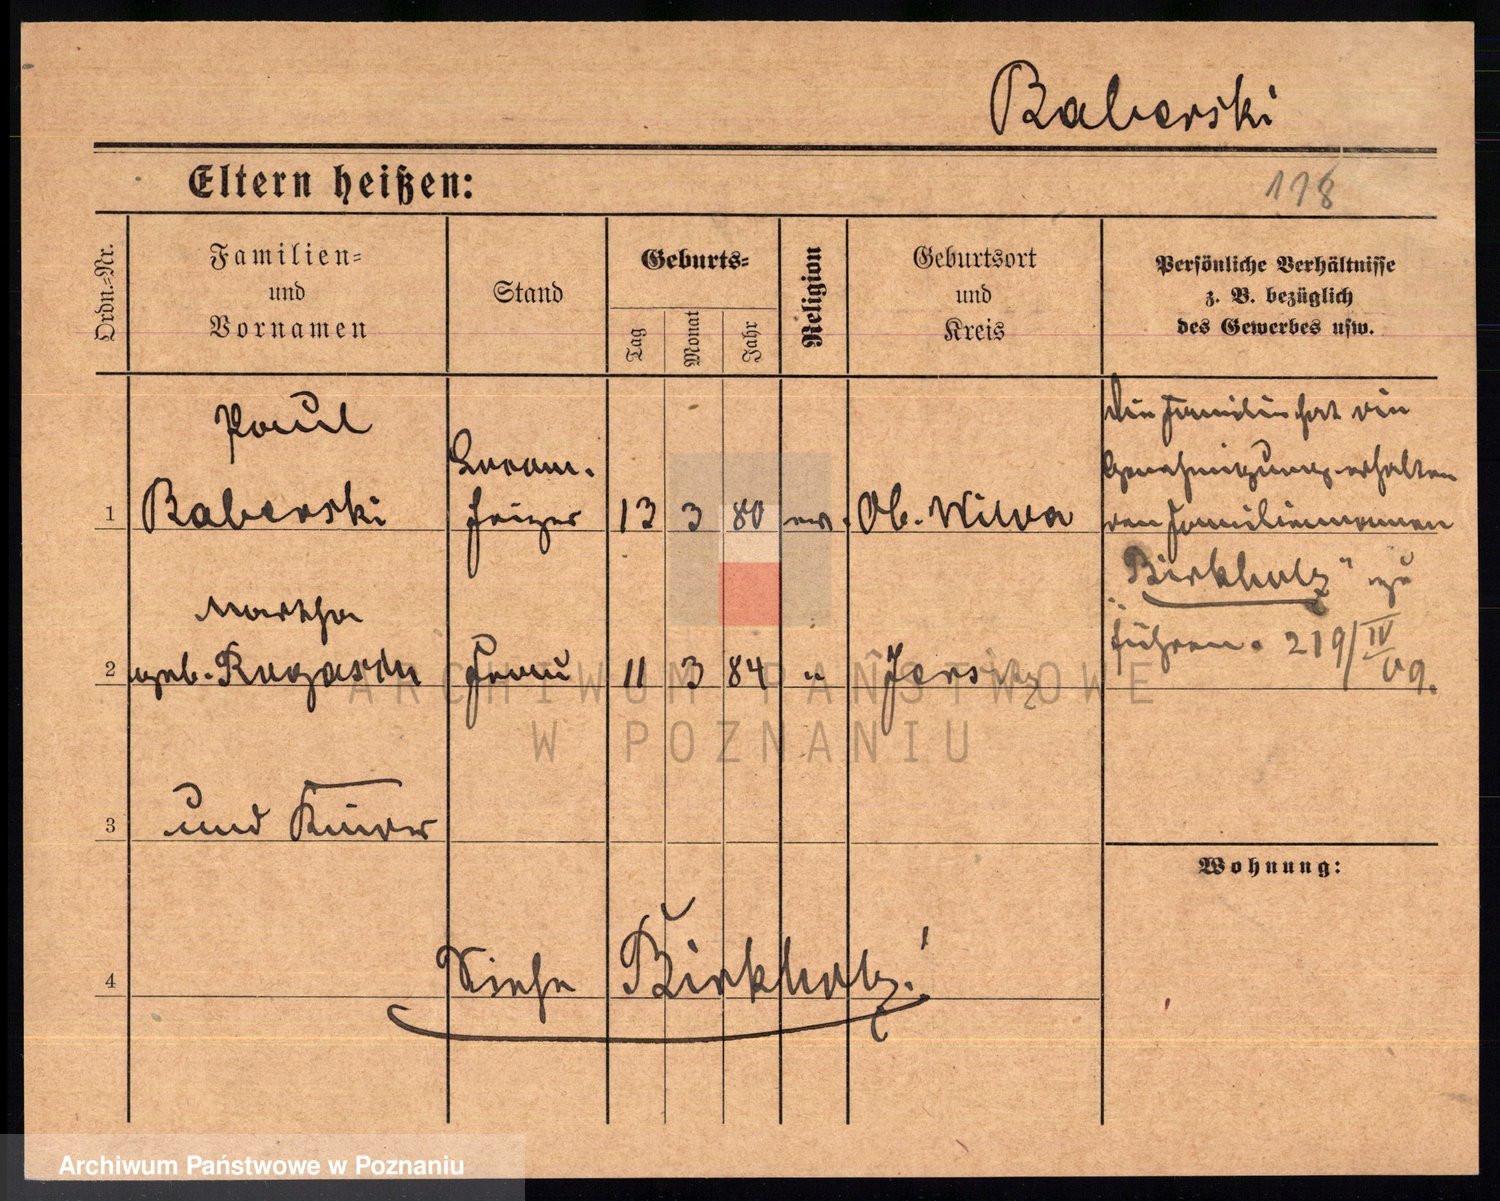 Baberski
Eltern heißen:
118
Ordn.=Nr.
Familien=
und
Vornamen
Stand
Geburts=
Tag
Monat
Jahr
Religion
Geburtsort
und
Kreis
Persönliche Verhältnisse
z. B. bezüglich
des Gewerbes usw.
1
Paul
Baberski
Locom.
heizer
13
3
80
ev.
Ob. Wilda
Die Familie hat die
Genehmigung erhalten
den Familiennamen
"Birkholz" zu
führen. 219/IV 09.
2
Martha
geb.
Frau
11
3
84
"
Jersitz
3
und Kinder
Wohnung:
4
Siehe Birkholz!
ARCHIWUM PAŃSTWOWE
W POZNANIU
Archiwum Państwowe w Poznaniu